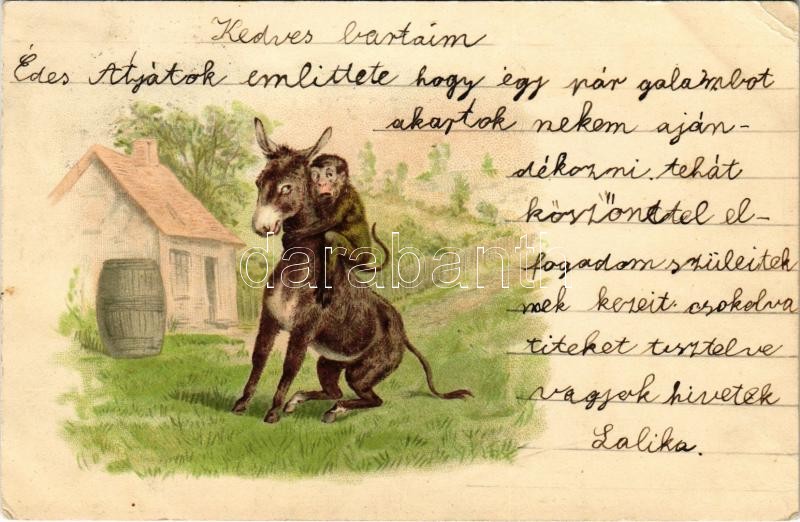 Kedves bartaim
Édes Atjátok emlittete hogy egy pár galambot
akartok nekem aján-
dékozni. tehát
köszönettel el-
fogadom szüleitek
nek kezeit. csokolva
titeket tisztelve
vagyok hivetek
Lalika.
darabanth